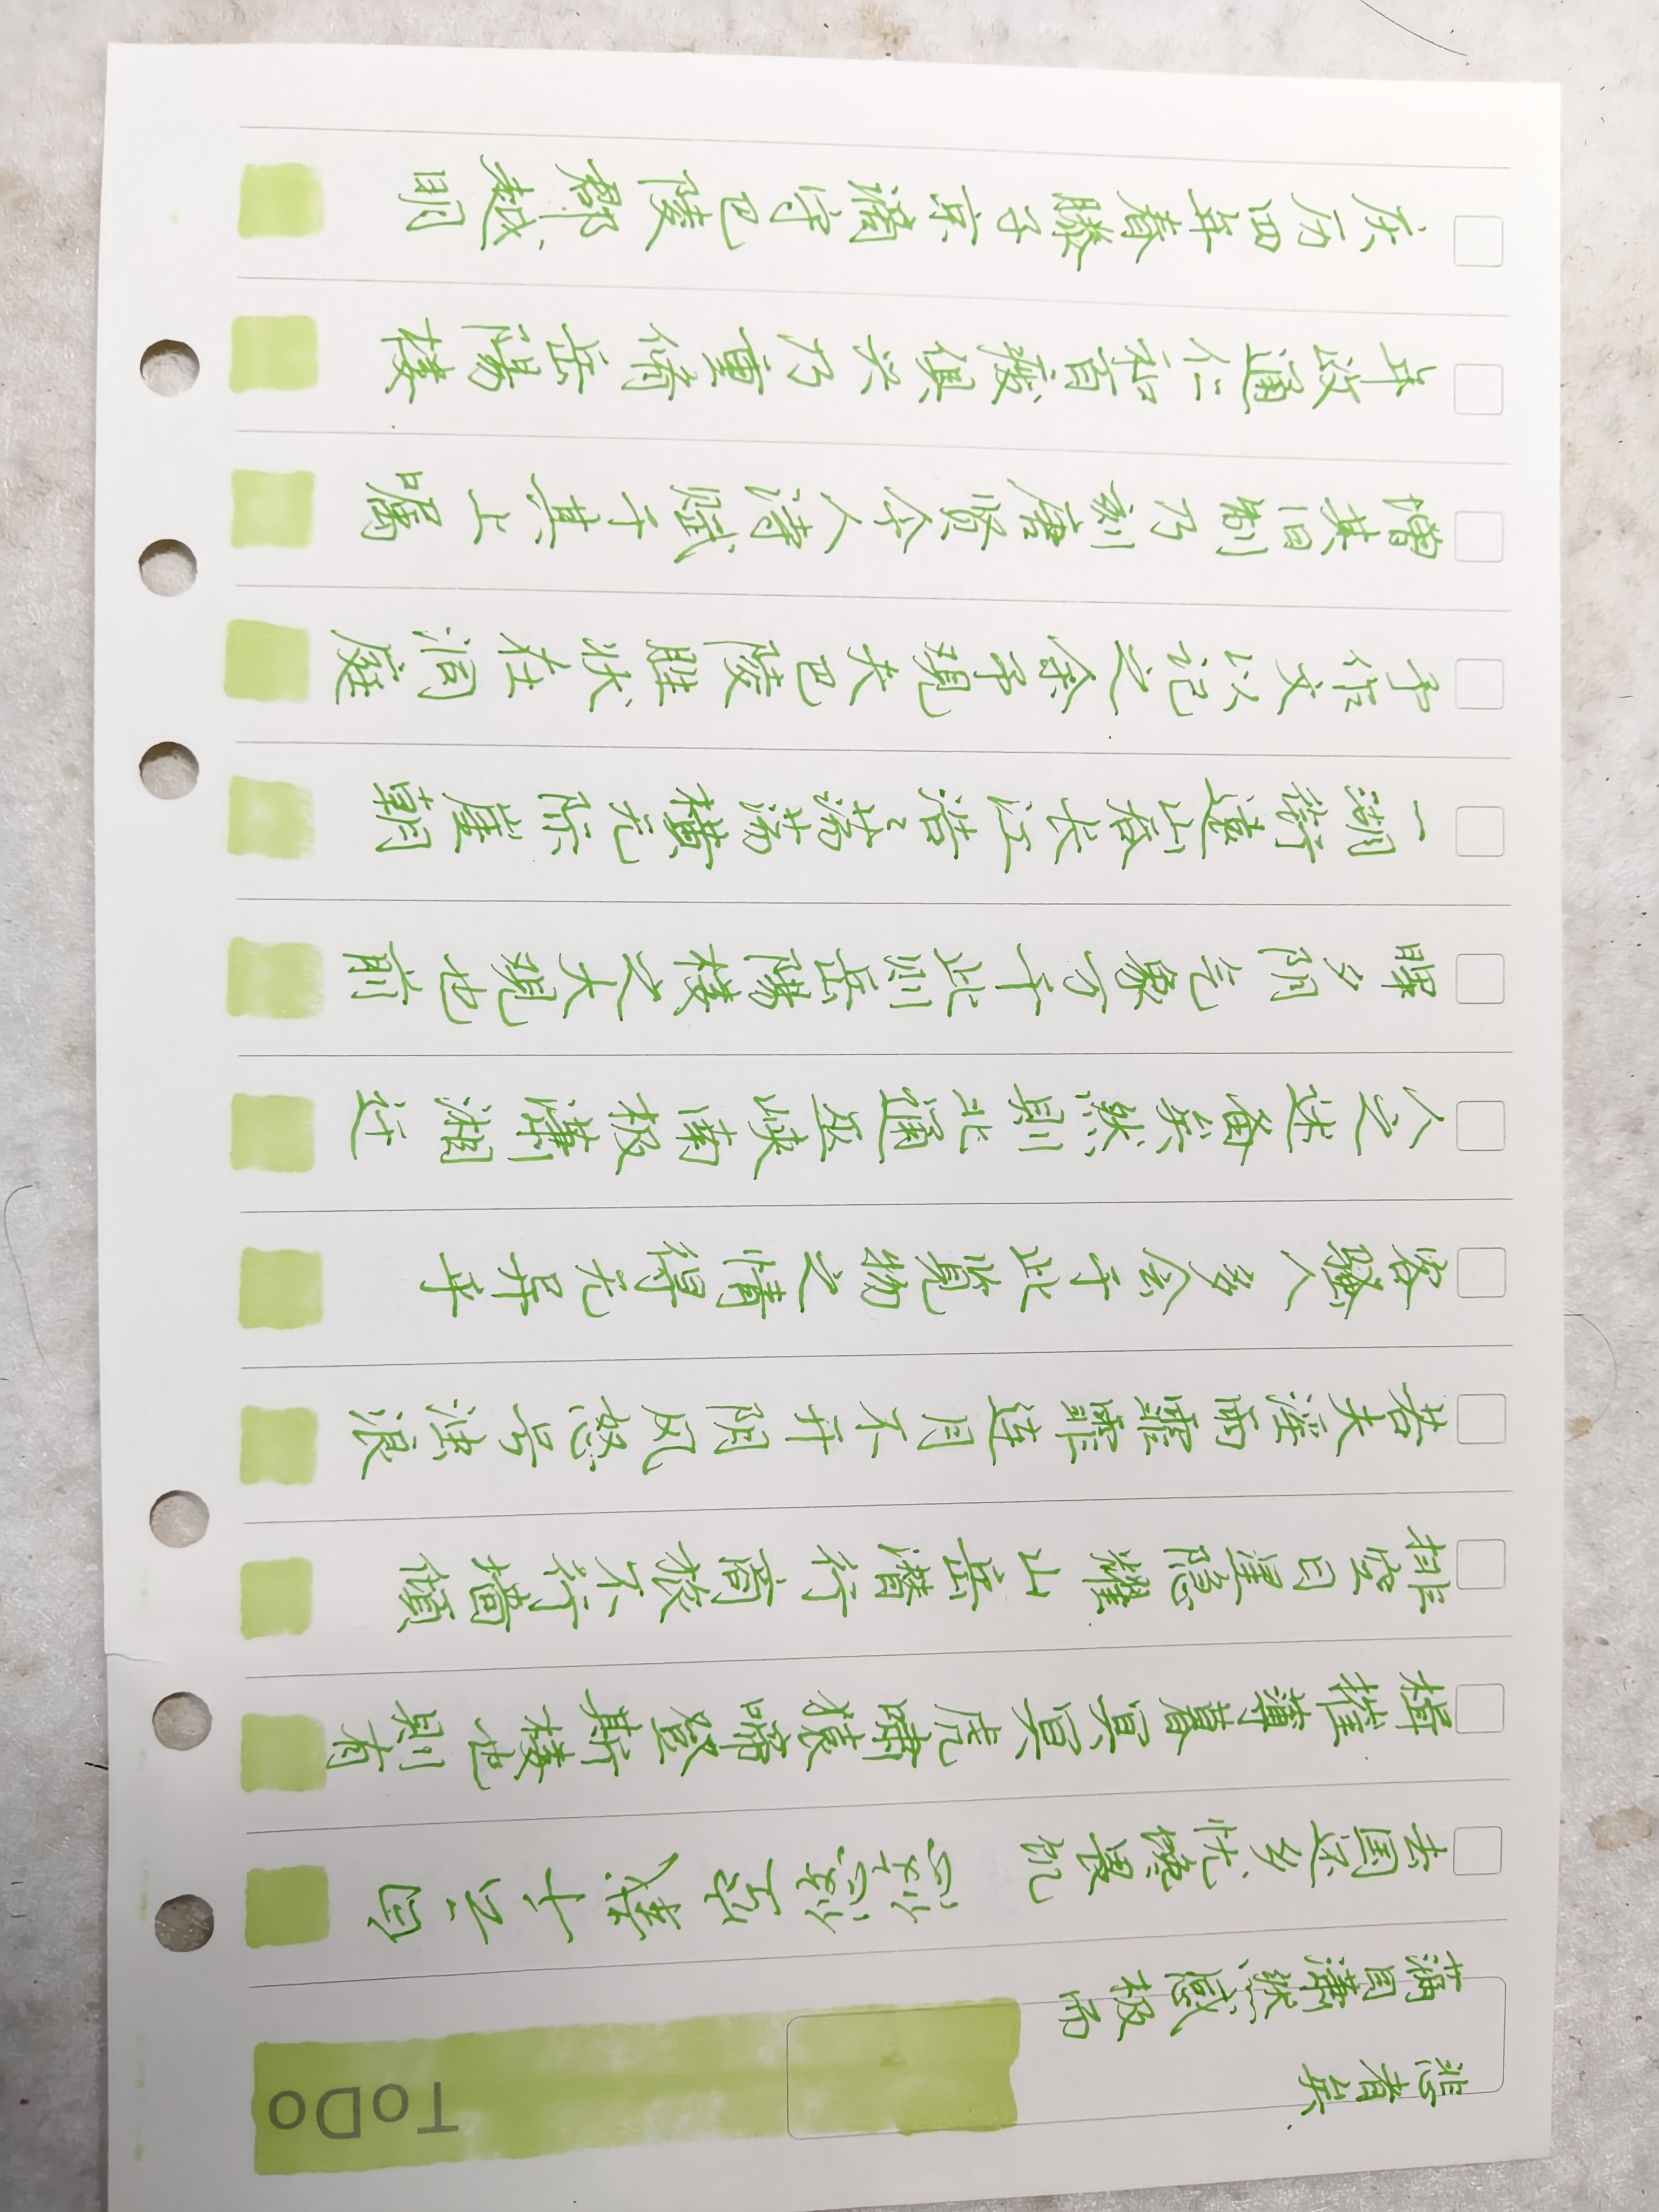 庆历四年春滕子京谪守巴陵郡越明
年政通仁和百废俱兴乃重脩岳陽楼
增其旧制乃刻唐贤今人诗赋于其上嘱
予作文以记之余予观夫巴陵胜状在洞庭
一湖銜遠山吞长江浩〻荡荡横无际崖朝
暉夕阴气象万千此则岳陽楼之大观也前
人之述备矣然則北通巫峡南极潇湘迁
客骚人多会于此览物之情得无异乎
若夫淫雨霏霏连月不开阴风怒号浊浪
排空日星隐耀山岳潜行商旅不行檣傾
楫摧薄暮冥冥虎嘯猿啼登斯楼也則有
去国乡忧讒畏讥
满目萧然感极而
悲者矣
ToDo